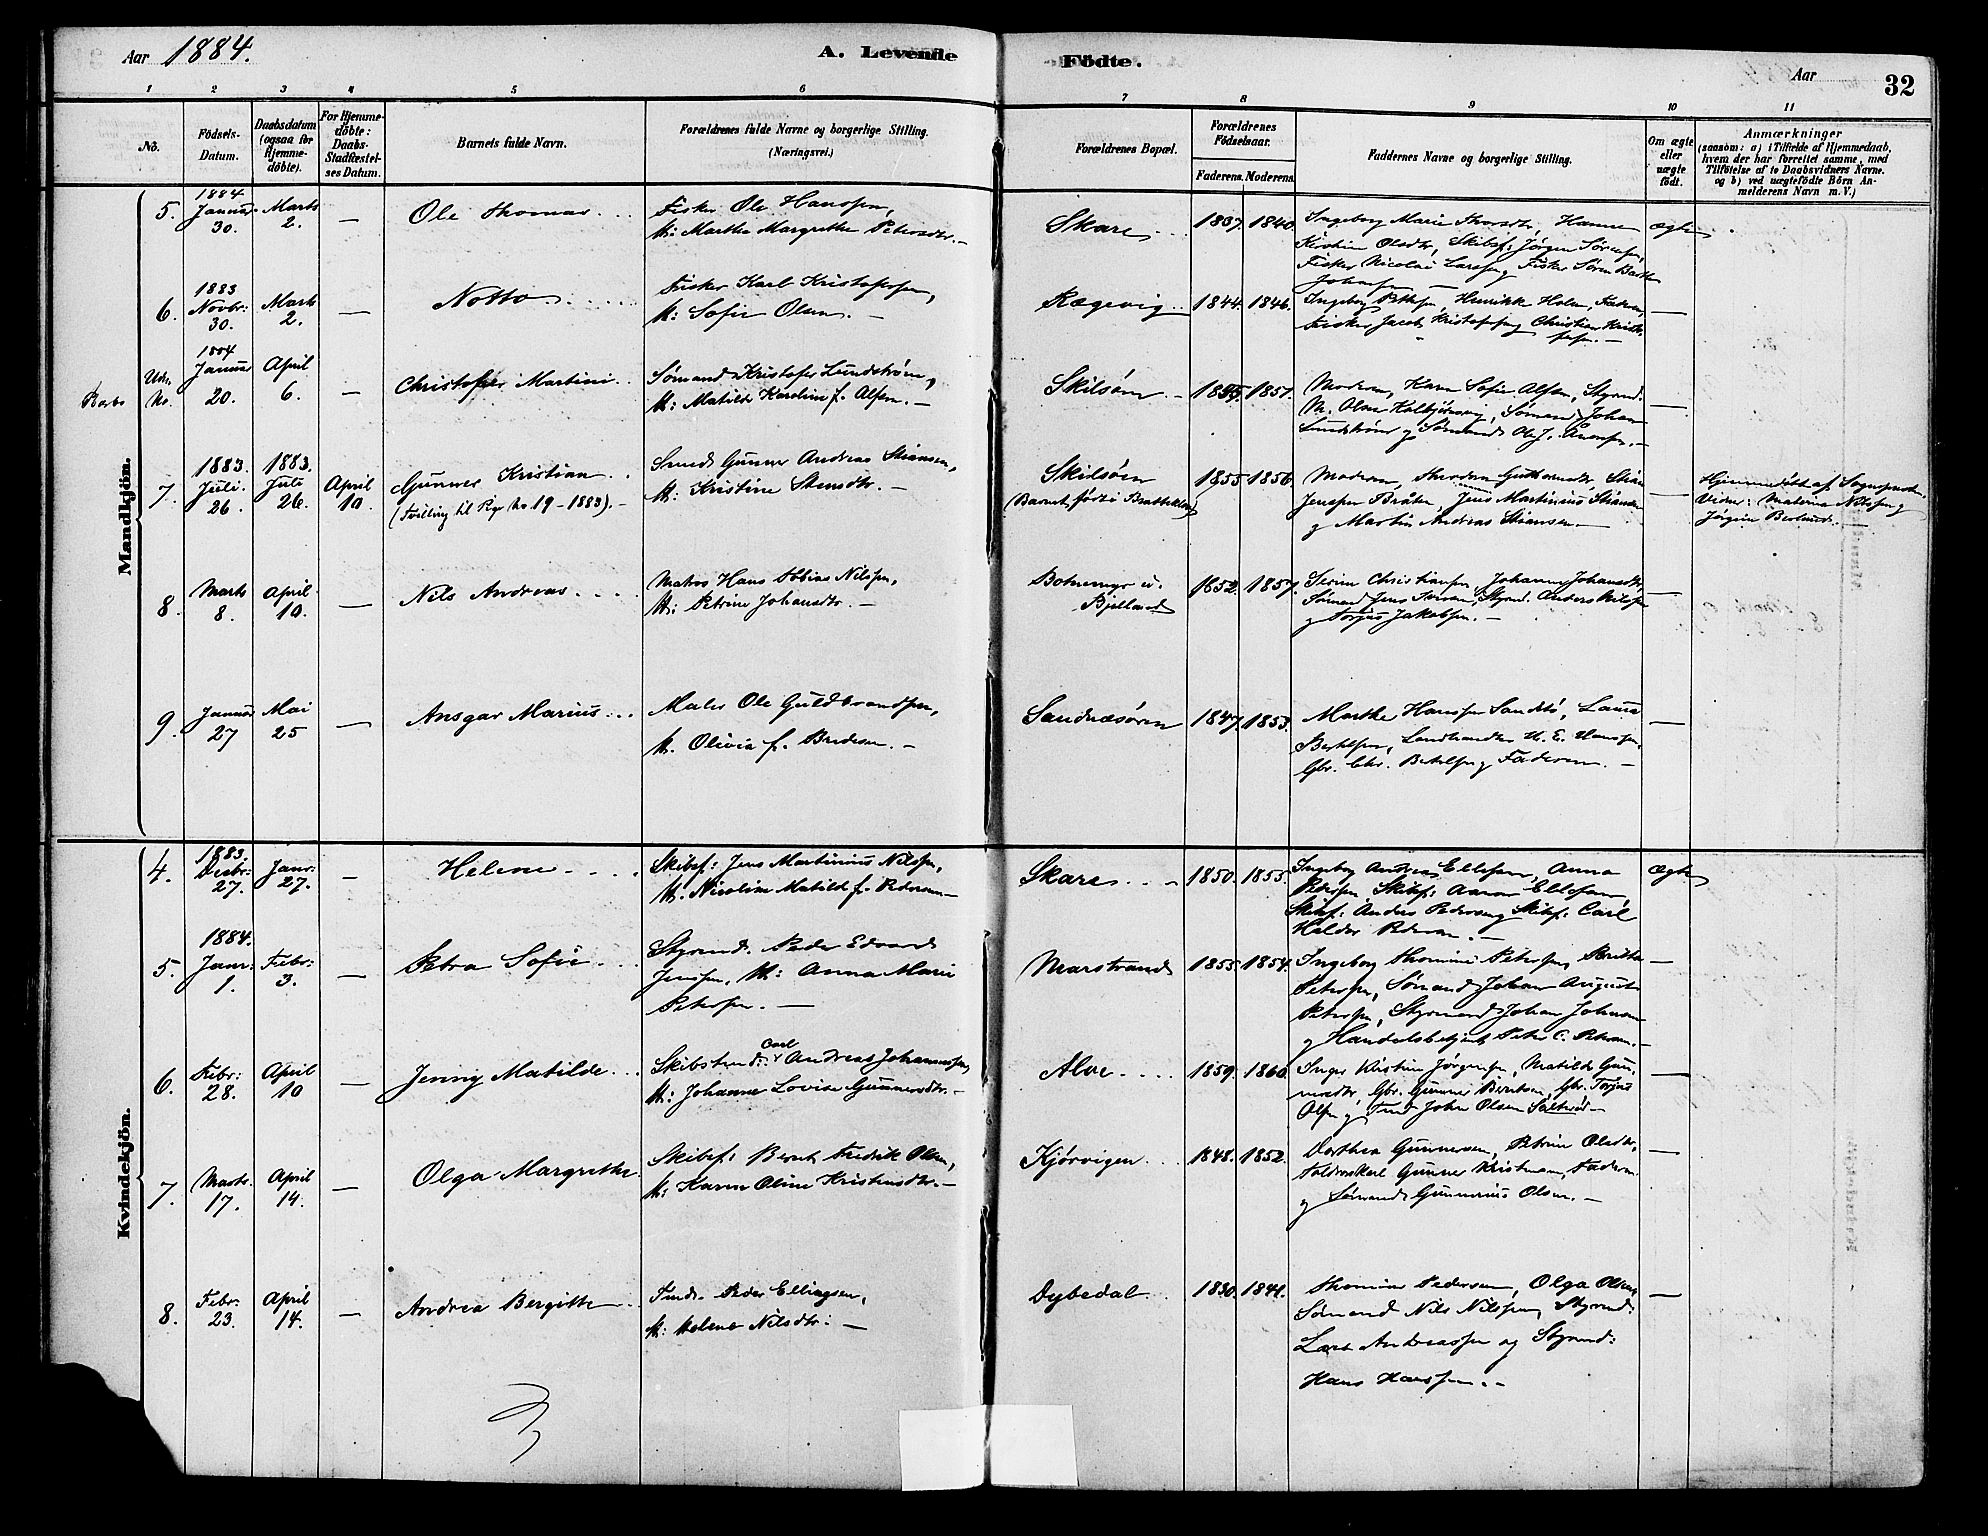 Aar 1884.
A. Levende
Födte.
Aar
32
1 2 3 4 5 6 7 8 9 10 11
No.
Födsels-
Datum.
Daabsdatum
(ogsaa for
Hjemme-
döbte).
For Hjemme-
döbte:
Daabs-
Stadfæstel-
ses Datum.
Barnets fulde Navn.
Forældrenes fulde Navne og borgerlige Stilling.
(Næringsvei.)
Forældrenes Bopæl.
Forældrenes
Födselsaar.
Faderens. Moderens.
Faddernes Navne og borgerlige Stilling.
Om ægte
eller
uægte
födt.
Anmærkninger
(saasom: a) i Tilfælde af Hjemmedaab,
hvem der har forrettet samme, med
Tilföielse af to Daabsvidners Navne.
og b) ved uægtefödte Börn An-
melderens Navn m. V.)
Mandkjön.
5. 1884 Januar 30. Marts 2. — Ole Thomas
Fisker Ole Hanssen,
H: Martha Margrethe Petersdtr. —
Skare 1837. 1840.
Ingeborg Marie Thorsdtr, Hanne
Kirstine Olsdtr, Skibsf: Jörgen Sörensen,
Fisker Nicolai Larsen og Fisker Sören Barth
Johansen —
ægte
6. 1883 Novbr: 30. Marts 2. — Notto
Fisker Karl Kristofersen,
H: Sofie Olsen. —
Rægevig 1844. 1846.
Ingeborg Henrikke Holm,
Fisker Jacob Kristofersen og Christian
—
Barbo
Udv. No. 1884 Januar 20. April 6. — Christofer Martini
Sömand Kristofer Lundström,
H: Matilde Karoline f. Alfsen. —
Skilsöen 1855. 1851.
Moderen, Karen Sofie Alfsen, Styrmd.
M. Olsen Kolbjörnsvig, Sömand Johan
Lundström og Sömand Ole J. —
—
7. 1883. Juli. 26. 1883. Juli 26. April 10. Gunner Kristian
(Tvilling til Pige No 19 – 1883). —
Smed Gunner Andreas
H: Kristine Stensdtr. —
Skilsöen
(Barnet födt i Brattekleiv)
1855 1856
Moderen,
Jensen Bråten, Jens Martinius
og Martin Andreas —
—
Hjemmedöbt af Sognepresten.
Vidner: Matina Nilssen og
Jörgine —
8. Marts 8. April 10. — Nils Andreas
Matros Hans Tobias Nilssen,
H: Petrine Johansdtr. —
Botnemyr u.
Bjelland
1852. 1857.
Serine Christiansen, Johanne Johansdtr,
Sömand Jens Styrmd. Anders Nilssen
og Torjus Jakobsen. —
—
9. Januar 27 Mai 25 — Ansgar Marius
Maler Ole Guldbrandsen,
H. Olivia f. Bredesen. —
Sandnæsören 1847. 1853.
Marthe Hanssen Sandtö, Laura
Berthelsen, Landhandler H. E. Hanssen,
Gbr. Chr. Bertelsen og Faderen. —
—
Kvindekjön.
4. 1883. Decbr: 27. Janr: 27. — Helene
Skibsf: Jens Martinius Nilssen,
H. Nicoline Matilde f. Pedersen —
Skare 1850. 1855.
Ingeborg Andrea Ellefsen, Anna
Pedersen Skibsf: Aanon Ellefsen,
Skibsf: Anders Pedersen og Skibsf: Carl
Halder Pedersen. —
Ægte
5. 1884. Janr: 1. Febr: 3. — Petra Sofie
Styrmd. Peder Edvard
Jenssen, H: Anna Marie
Petersen. —
Marstrand 1855. 1854.
Ingeborg Thomine Petersen,
Petersen, Sömand Johan August
Petersen, Styrmand Johan Johnsen
og Handelsbetjent Peter C. Petersen. —
—
6. Febr: 28. April 10 — Jenny Matilde
Skibstmd: Carl Andreas Johannessen,
H: Johanne Lovise Gunnersdtr. —
Alve 1859. 1860.
Inger Kistine Jörgensen, Matilde Gun-
nersdtr, Gbr. Gunner Berntsen, Gbr. Torjus
Olsen og Tmd John Olsen Salteröd —
—
7. Marts 17. April 14. — Olga Margrethe
Skibsf: Bernt Fredrik Olsen,
H: Karen Oline Kristensdtr. —
Kjörvigen 1848. 1852.
Dorthea Gunnersen, Petrine Olsdtr,
Toldroerkarl Gunner Kristensen, Faderen
og Sömand Gunnerius Olsen. —
—
8. Febr: 23. April 14. — Andrea Bergitte
Tmd. Peder Ellingsen,
H: Helene Nilsdtr: —
Dybedal 1830. 1841.
Thomine Pedersen, Olga Olsen,
Sömand Nils Nilssen, Styrmd:
Lars Andreassen og Styrmd:
Hans Hanssen. —
—